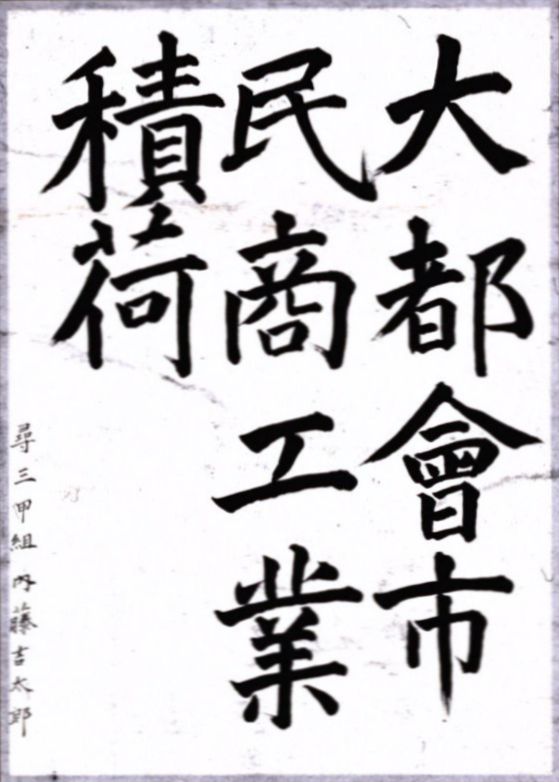 大都會市
民商工業
積荷
尋三甲組 内藤吉太郎